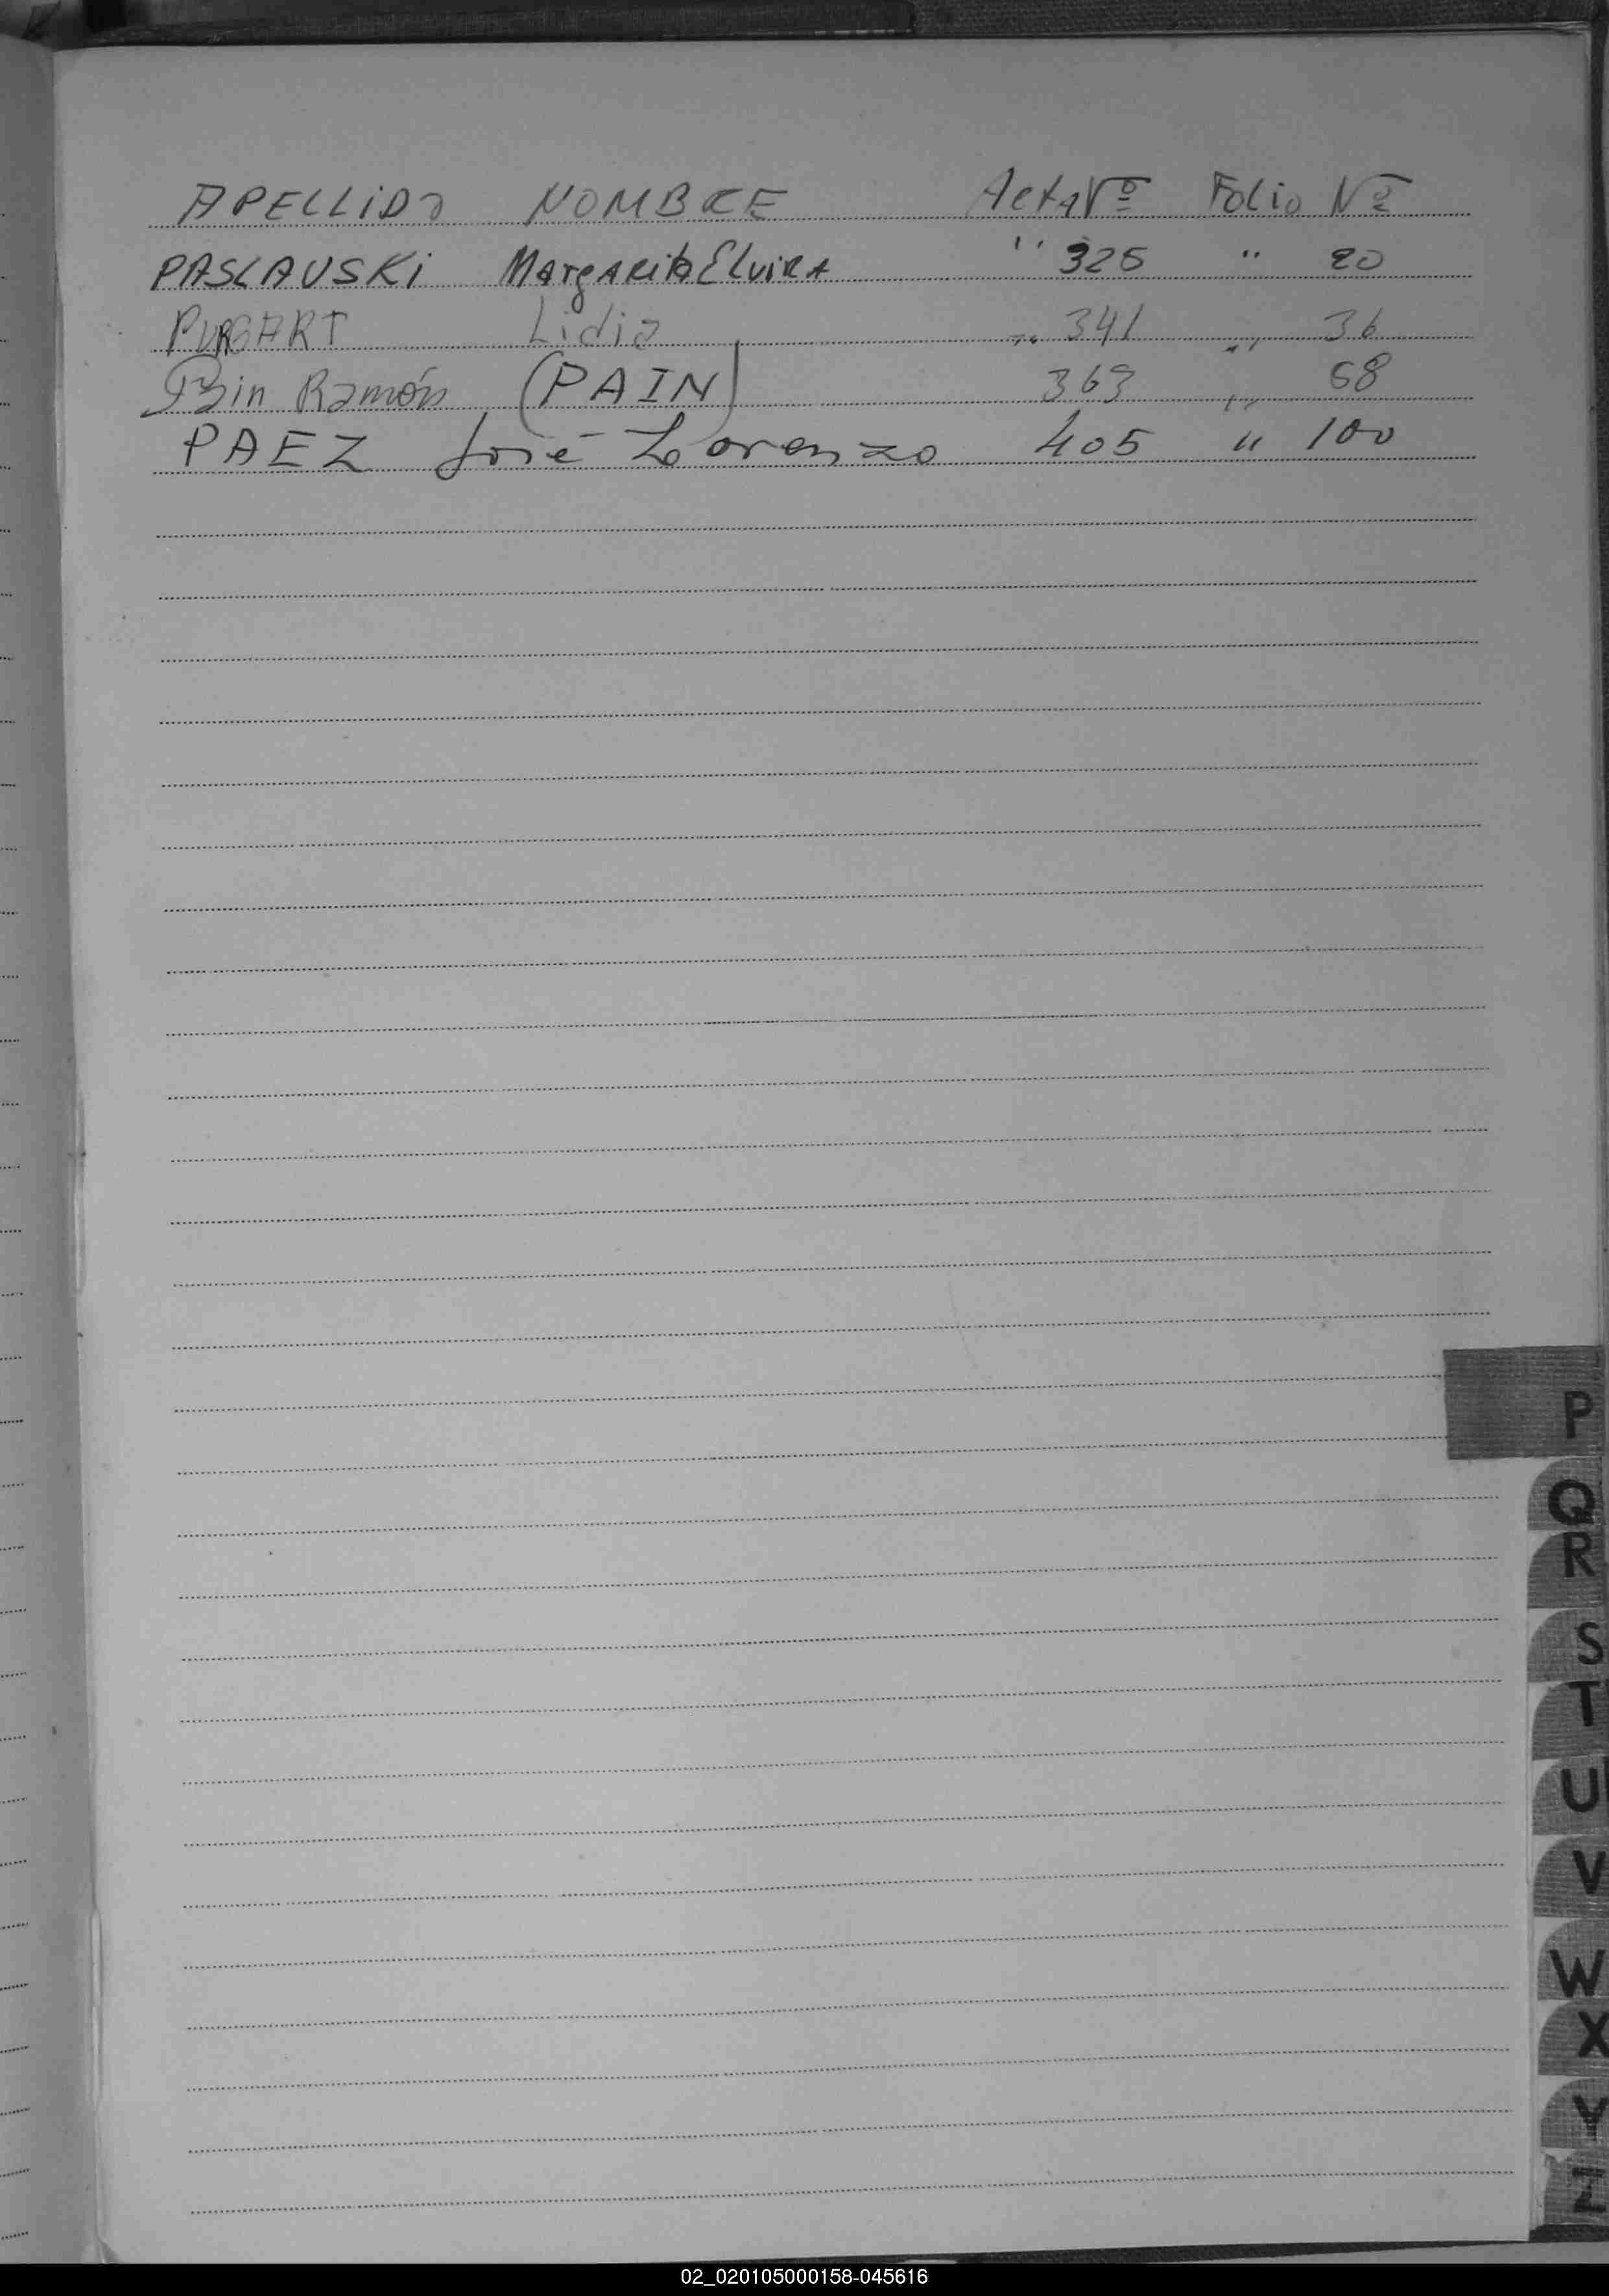 APELLIDO NOMBRE Acta Nº Folio Nº
PASLAUSKi Margarita Elvira " 325 " 20
PURGART Lidia " 341 " 36
Pain Ramón (PAIN) 363 " 58
PAEZ José Lorenzo 405 " 100
P
Q
R
S
T
U
V
W
X
Y
Z
02_020105000158-045616